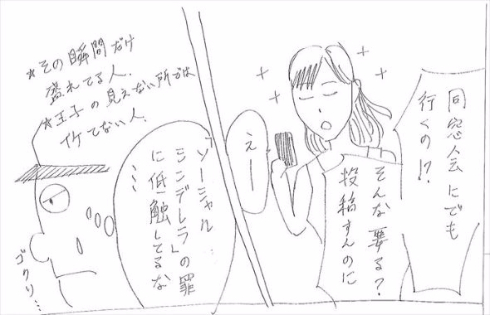 同窓会にでも
行くの!?
そんな要る?
投稿すんのに
えー
「ソーシャル
シンデレラ」の罪
に低触してるな
…
*その瞬間だけ
盛れてる人。
*王子の見えない所では
イケてない人。
ゴクリ…